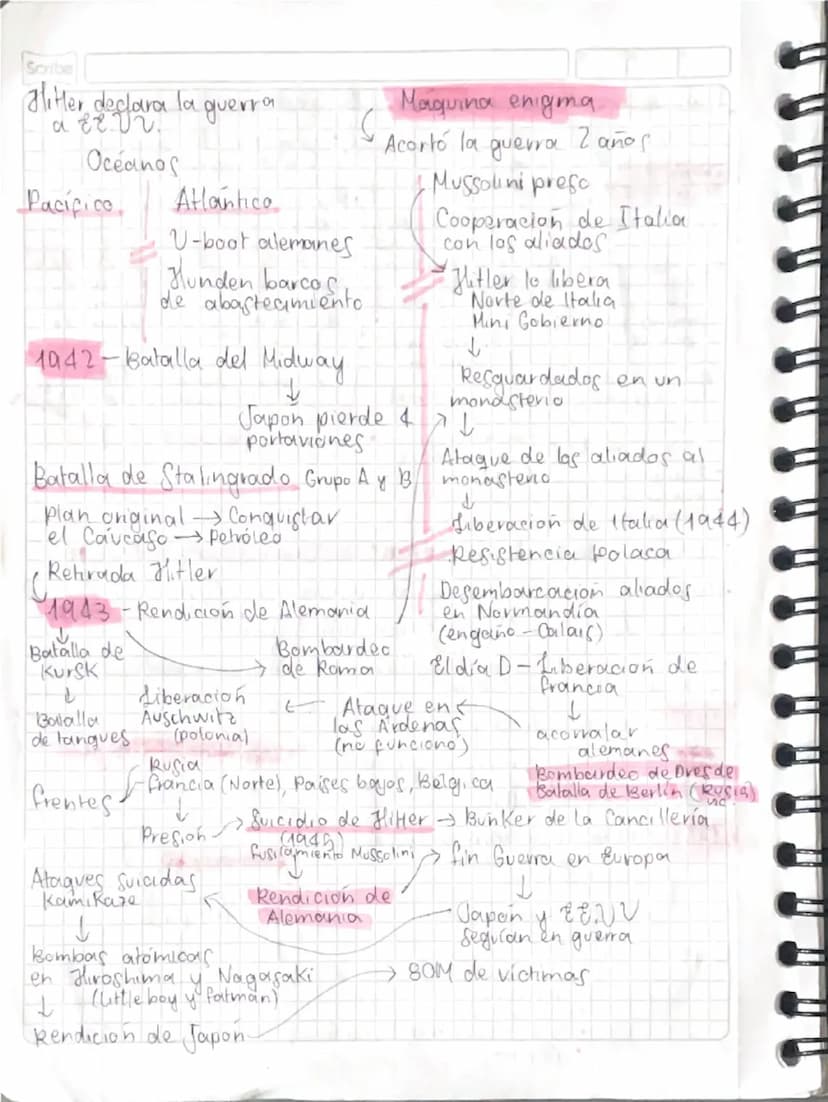 Scribe
Hitler declara la guerra
a EE.UU.
Océanos
Pacífico
Atlántico
U-boot alemanes
Hunden barcos
de abastecimiento
1942 - Batalla del Midway
↓
Japón pierde 4
portaviones
Batalla de Stalingrado Grupo A y B
Plan original → Conquistar
el Cáucaso → Petróleo
Retirada Hitler
1943 - Rendición de Alemania
↓
Batalla de
Kursk
↓
Batalla
de tanques
Bombardeo
de Roma
Máquina enigma
Acortó la guerra 2 años
Mussolini preso
Cooperación de Italia
con los aliados
Hitler lo libera
Norte de Italia
Mini Gobierno
↓
Resguardados en un
monasterio
↓
Ataque de los aliados al
monasterio
↓
Liberación de Italia (1944)
Resistencia Polaca
Desembarcación aliados
en Normandía
(engaño - Calais)
El día D - Liberación de
Francia
↓
acorralar
alemanes
Ataque en
las Ardenas
(no funcionó)
Liberación
Auschwitz
(polonia)
Bombardeo de Dresde
Batalla de Berlín (Rusia)
Frentes
Rusia
Francia (Norte), Países bajos, Bélgica
↓
Presión → Suicidio de Hitler → Bunker de la Cancillería
(1945)
Fusilamiento Mussolini
↓
Rendición de
Alemania
→ Fin Guerra en Europa
↓
Japón y EE.UU
seguían en guerra
Ataques suicidas
Kamikaze
↓
Bombas atómicas
en Hiroshima y Nagasaki
(Little boy y fatman)
↓
Rendición de Japón
→ 80M de víctimas